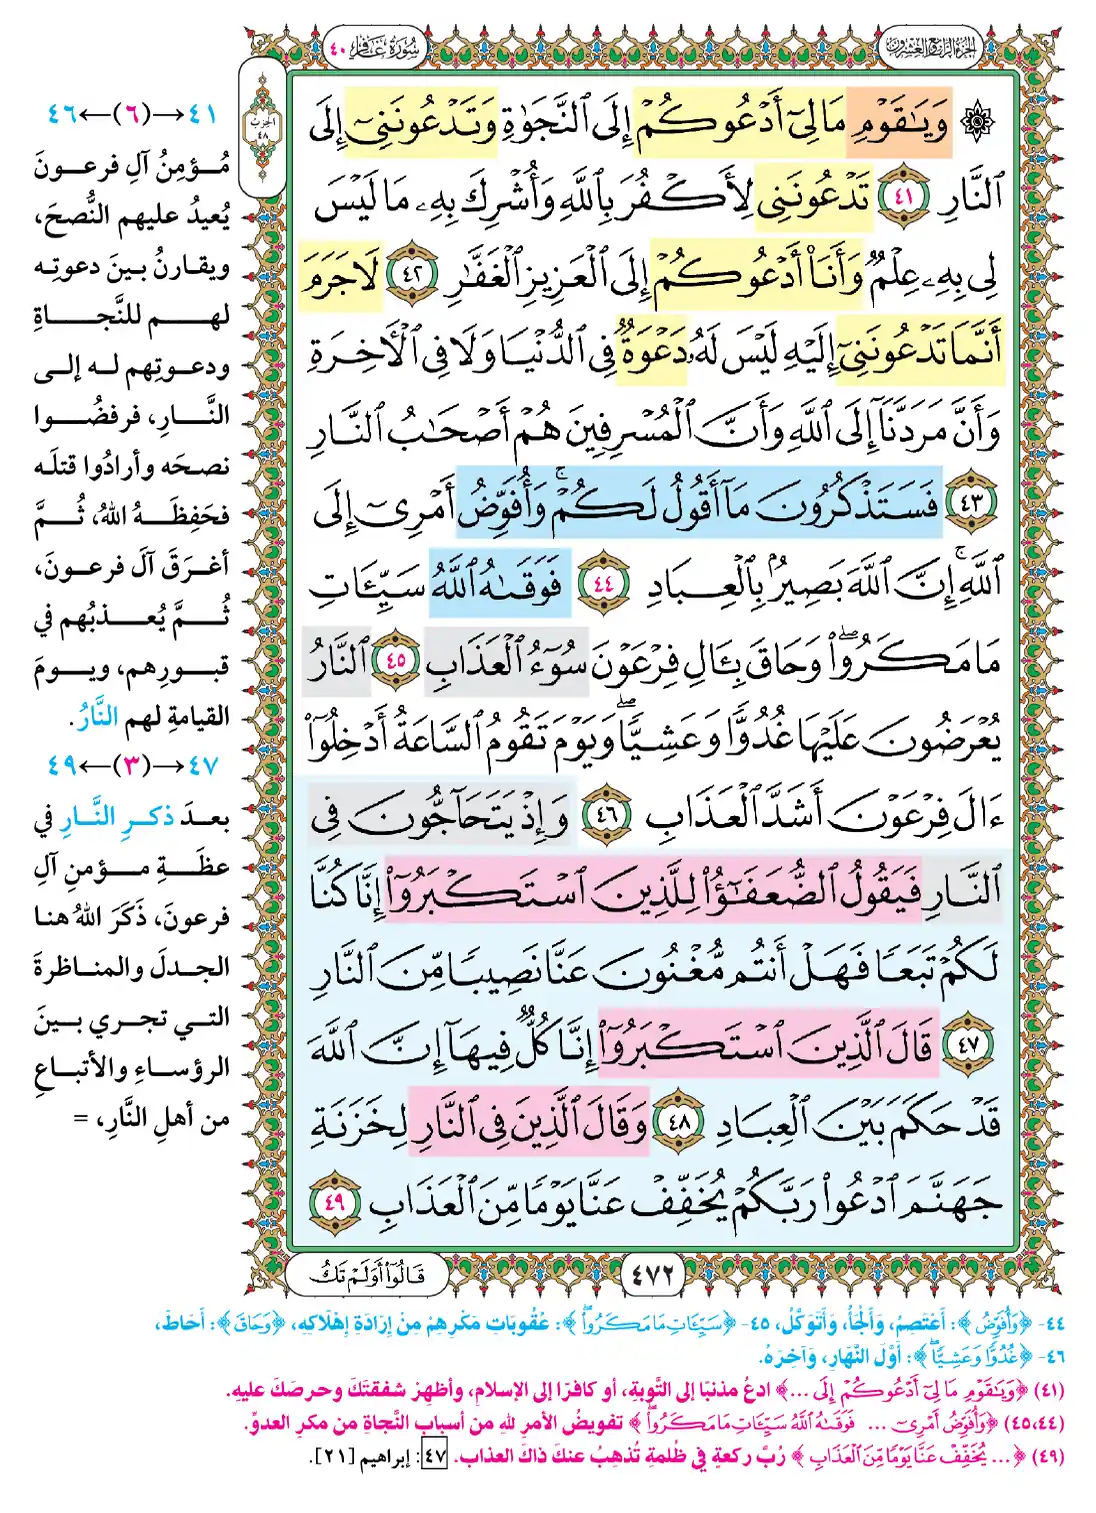 الجزء الرابع والعشرون
سورة غافر ٤٠
الحزب ٤٨
۞ وَيَٰقَوۡمِ مَا لِيٓ أَدۡعُوكُمۡ إِلَى ٱلنَّجَوٰةِ وَتَدۡعُونَنِيٓ إِلَى
ٱلنَّارِ ٤١ تَدۡعُونَنِي لِأَكۡفُرَ بِٱللَّهِ وَأُشۡرِكَ بِهِۦ مَا لَيۡسَ
لِي بِهِۦ عِلۡمٞ وَأَنَا۠ أَدۡعُوكُمۡ إِلَى ٱلۡعَزِيزِ ٱلۡغَفَّٰرِ ٤٢ لَا جَرَمَ
أَنَّمَا تَدۡعُونَنِيٓ إِلَيۡهِ لَيۡسَ لَهُۥ دَعۡوَةٞ فِي ٱلدُّنۡيَا وَلَا فِي ٱلۡأٓخِرَةِ
وَأَنَّ مَرَدَّنَآ إِلَى ٱللَّهِ وَأَنَّ ٱلۡمُسۡرِفِينَ هُمۡ أَصۡحَٰبُ ٱلنَّارِ
٤٣ فَسَتَذۡكُرُونَ مَآ أَقُولُ لَكُمۡۚ وَأُفَوِّضُ أَمۡرِيٓ إِلَى
ٱللَّهِۚ إِنَّ ٱللَّهَ بَصِيرُۢ بِٱلۡعِبَادِ ٤٤ فَوَقَىٰهُ ٱللَّهُ سَيِّـَٔاتِ
مَا مَكَرُواْۖ وَحَاقَ بِـَٔالِ فِرۡعَوۡنَ سُوٓءُ ٱلۡعَذَابِ ٤٥ ٱلنَّارُ
يُعۡرَضُونَ عَلَيۡهَا غُدُوّٗا وَعَشِيّٗاۖ وَيَوۡمَ تَقُومُ ٱلسَّاعَةُ أَدۡخِلُوٓاْ
ءَالَ فِرۡعَوۡنَ أَشَدَّ ٱلۡعَذَابِ ٤٦ وَإِذۡ يَتَحَآجُّونَ فِي
ٱلنَّارِ فَيَقُولُ ٱلضُّعَفَٰٓؤُاْ لِلَّذِينَ ٱسۡتَكۡبَرُوٓاْ إِنَّا كُنَّا
لَكُمۡ تَبَعٗا فَهَلۡ أَنتُم مُّغۡنُونَ عَنَّا نَصِيبٗا مِّنَ ٱلنَّارِ
٤٧ قَالَ ٱلَّذِينَ ٱسۡتَكۡبَرُوٓاْ إِنَّا كُلّٞ فِيهَآ إِنَّ ٱللَّهَ
قَدۡ حَكَمَ بَيۡنَ ٱلۡعِبَادِ ٤٨ وَقَالَ ٱلَّذِينَ فِي ٱلنَّارِ لِخَزَنَةِ
جَهَنَّمَ ٱدۡعُواْ رَبَّكُمۡ يُخَفِّفۡ عَنَّا يَوۡمٗا مِّنَ ٱلۡعَذَابِ ٤٩
٤٧٢
قَالُوٓاْ أَوَلَمۡ تَكُ
٤١→(٦)←٤٦
مُؤمِنُ آلِ فرعونَ
يُعيدُ عليهم النُّصحَ،
ويقارنُ بينَ دعوتِه
لهم للنَّجاةِ
ودعوتِهم له إلى
النَّارِ، فرفضُوا
نصحَه وأرادُوا قتلَه
فحَفِظَهُ اللهُ، ثُمَّ
أغرَقَ آلَ فرعونَ،
ثُمَّ يُعذبُهم في
قبورِهم، ويومَ
القيامةِ لهم النَّارُ.
٤٧→(٣)←٤٩
بعدَ ذكرِ النَّارِ في
عظَةِ مؤمنِ آلِ
فرعونَ، ذَكَرَ اللهُ هنا
الجدلَ والمناظرةَ
التي تجري بينَ
الرؤساءِ والأتباعِ
من أهلِ النَّارِ، =
٤٤- ﴿وَأُفَوِّضُ﴾: أَعْتَصِمُ، وَأَلْجَأُ، وَأَتَوَكَّلُ، ٤٥- ﴿سَيِّـَٔاتِ مَا مَكَرُواْۖ﴾: عُقُوبَاتِ مَكْرِهِمْ مِنْ إِرَادَةِ إِهْلَاكِهِ، ﴿وَحَاقَ﴾: أَحَاطَ،
٤٦- ﴿غُدُوّٗا وَعَشِيّٗاۖ﴾: أَوَّلَ النَّهَارِ، وَآخِرَهُ.
(٤١) ﴿وَيَٰقَوۡمِ مَا لِيٓ أَدۡعُوكُمۡ إِلَى ...﴾ ادعُ مذنبًا إلى التَّوبةِ، أو كافرًا إلى الإسلامِ، وأظهِرْ شفقتَكَ وحرصَكَ عليهِ.
(٤٥،٤٤) ﴿وَأُفَوِّضُ أَمۡرِيٓ ... فَوَقَىٰهُ ٱللَّهُ سَيِّـَٔاتِ مَا مَكَرُواْۖ﴾ تفويضُ الأمرِ للهِ من أسبابِ النَّجاةِ من مكرِ العدوِّ.
(٤٩) ﴿... يُخَفِّفۡ عَنَّا يَوۡمٗا مِّنَ ٱلۡعَذَابِ﴾ رُبَّ ركعةٍ في ظُلمةٍ تُذهبُ عنكَ ذاكَ العذاب. ٤٧: إبراهيم [٢١].